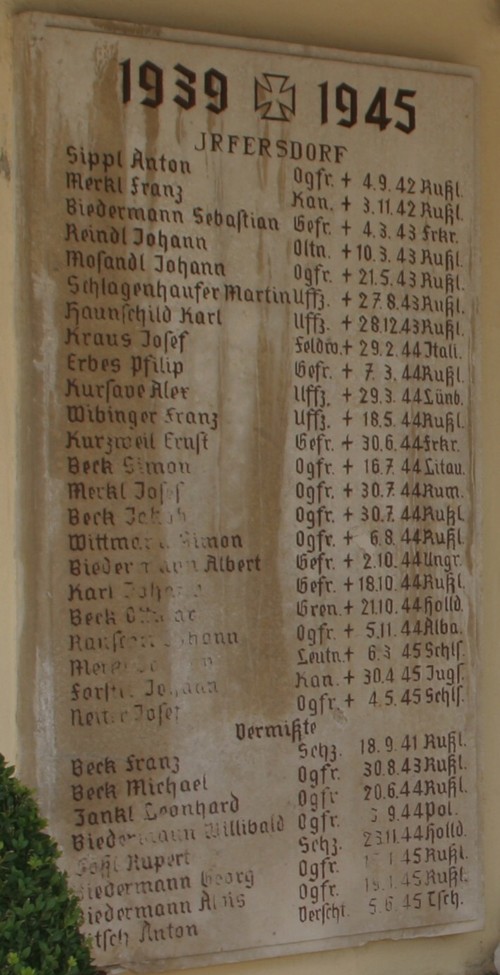 1939 1945
IRFERSDORF
Sippl Anton Ogfr. + 4.9.42 Rußl.
Merkl Franz Kan. + 3.11.42 Rußl.
Biedermann Sebastian Gefr. + 4.3.43 Frkr.
Reindl Johann Oltn. + 10.3.43 Rußl.
Mosandl Johann Ogfr. + 21.5.43 Rußl.
Schlagenhaufer Martin Uffz. + 27.8.43 Rußl.
Haunschild Karl Uffz. + 28.12.43 Rußl.
Kraus Josef Feldw. + 29.2.44 Itali.
Erbes Pfilip Gefr. + 7.3.44 Rußl.
Kursave Alex Uffz. + 29.3.44 Lünb.
Wibinger Franz Uffz. + 18.5.44 Rußl.
Kurzweil Ernst Gefr. + 30.6.44 Frkr.
Beck Simon Ogfr. + 16.7.44 Litau.
Merkl Josef Ogfr. + 30.7.44 Rum.
Beck Jakob Ogfr. + 30.7.44 Rußl.
Wittmann Simon Ogfr. + 6.8.44 Rußl.
Biedermann Albert Gefr. + 2.10.44 Ungr.
Karl Johann Gefr. + 18.10.44 Rußl.
Beck Ottmar Gren. + 21.10.44 Holld.
Johann Ogfr. + 5.11.44 Alba.
Leutn. + 6.3.45 Schls.
Johann Kan. + 30.4.45 Jugs.
Josef Ogfr. + 4.5.45 Schls.
Vermißte
Beck Franz Schz. 18.9.41 Rußl.
Beck Michael Ogfr. 30.8.43 Rußl.
Jankl Leonhard Ogfr 20.6.44 Rußl.
Biedermann Willibald Ogfr. Pol.
Rupert Schz. 23.11.44 Holld.
Biedermann Georg Ogfr. Rußl.
Biedermann Alois Ogfr. 19.1.45 Rußl.
Anton Verscht. 5.6.45 Tsch.